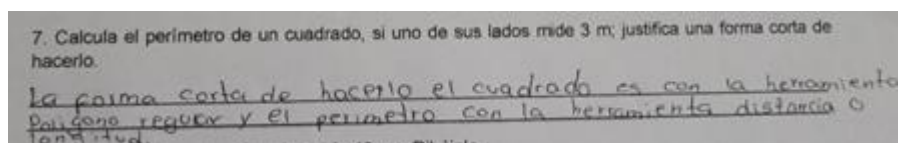 7. Calcula el perímetro de un cuadrado, si uno de sus lados mide 3 m; justifica una forma corta de
hacerlo.
La forma corta de hacerlo el cuadrado es con la herramienta
Poligono regular y el perimetro con la herramienta distancia o
longitud.